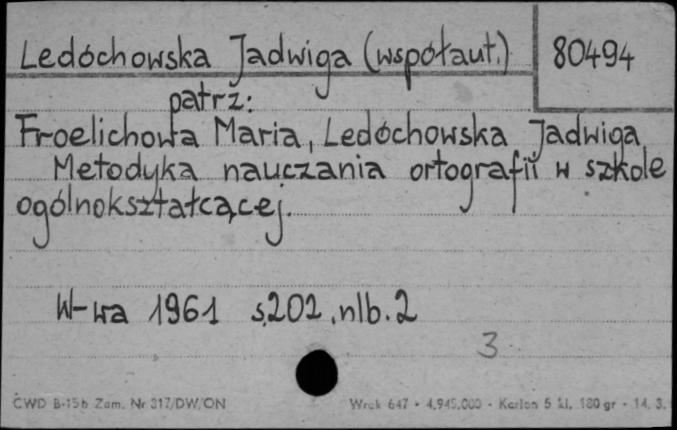 Ledóchowska Jadwiga (współaut.) 80494
patrz:
Froelichowa Maria, Ledóchowska Jadwiga
Metodyka nauczania ortografii w szkole
ogólnokształcącej.
W-wa 1961 s.202, nlb.2
3
CWD B-15b Zam. Nr 317/DW/ON Wrak 647 - 4.945.000 - Karton 5 kl. 180 gr - 14. 3.